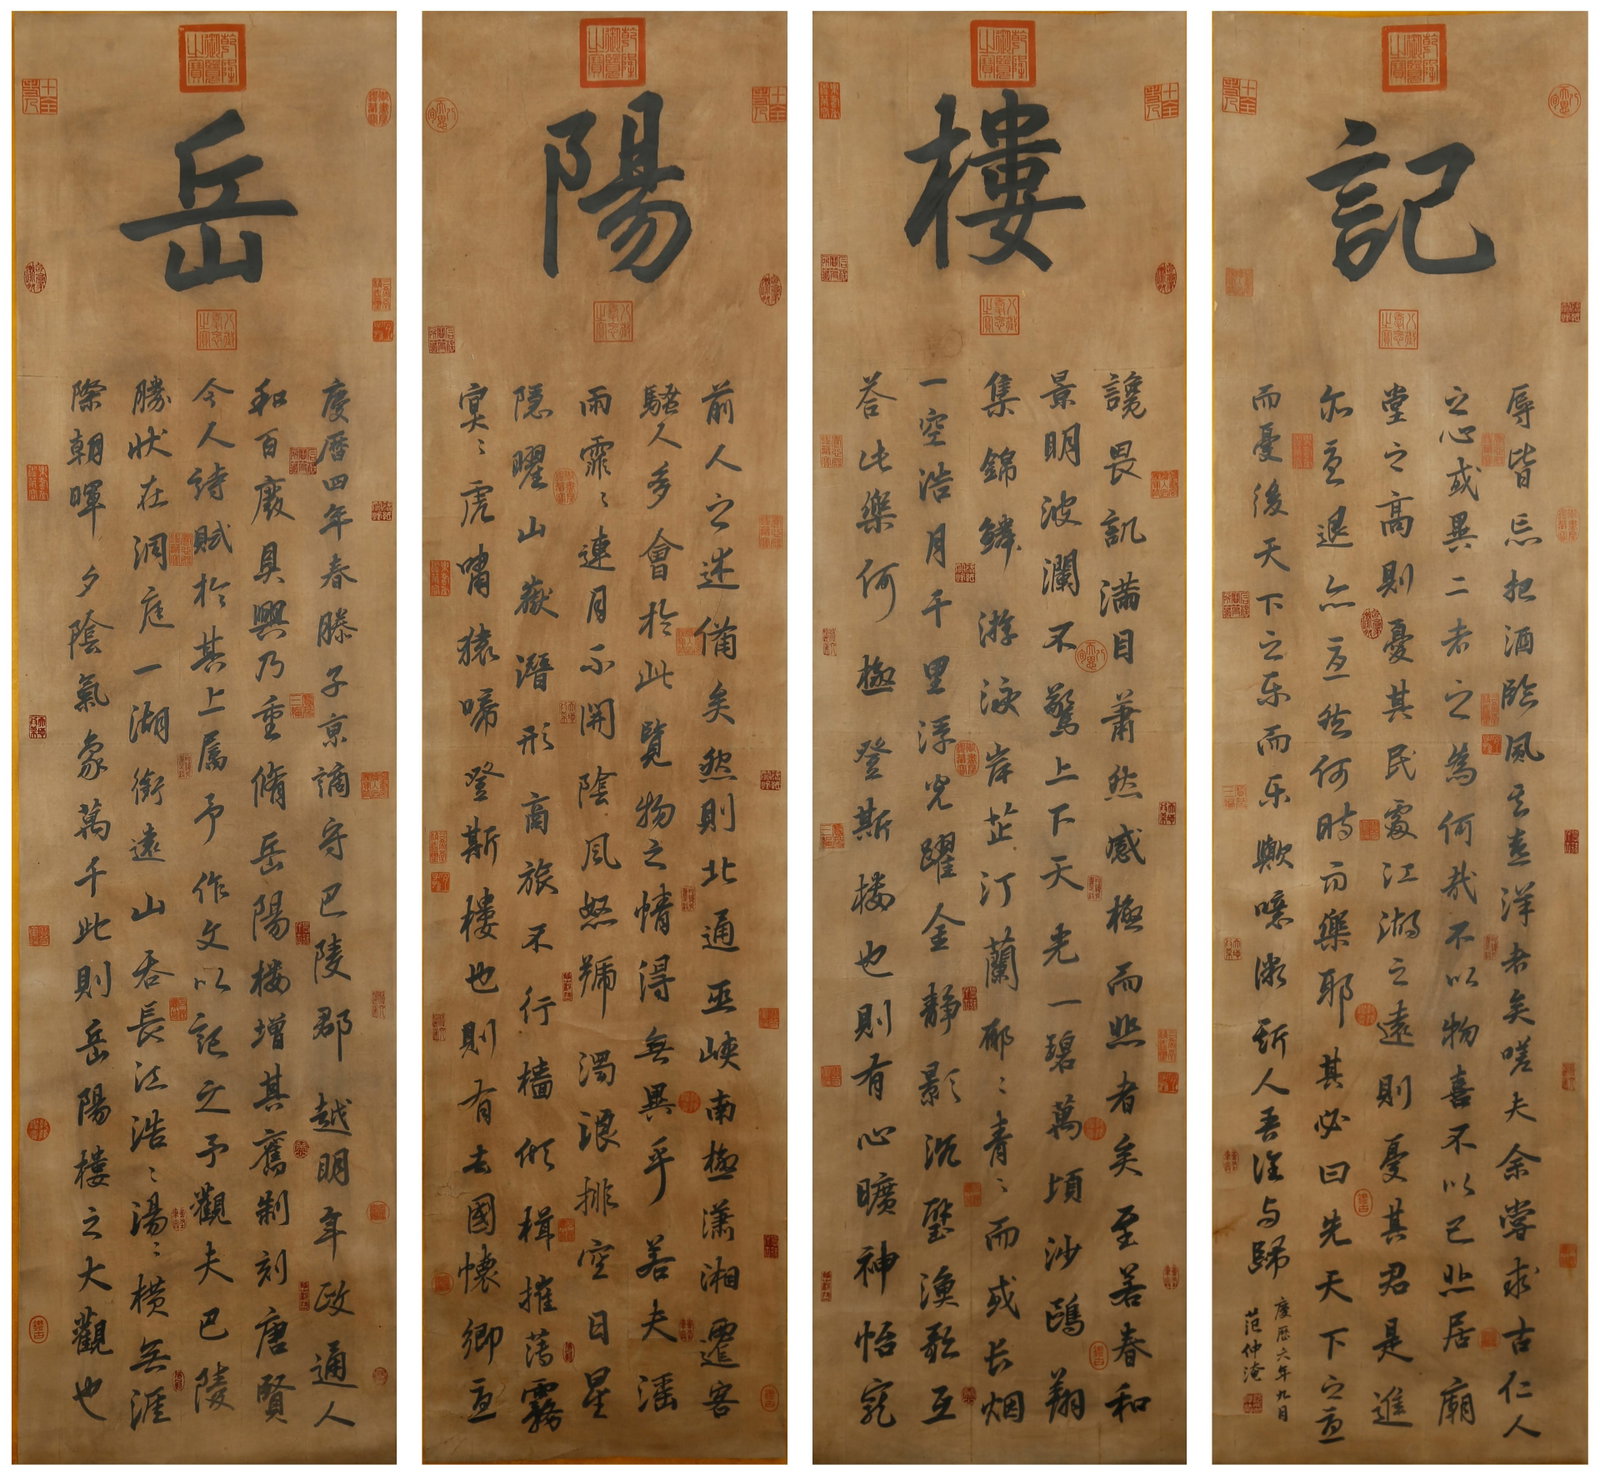 乾隆御覽之寶
岳
八徵耄念之寶
慶曆四年春滕子京謫守巴陵郡越明年政通人
和百廢具興乃重脩岳陽樓增其舊制刻唐賢
今人詩賦於其上屬予作文以記之予觀夫巴陵
勝狀在洞庭一湖銜遠山吞長江浩々湯々橫無涯
際朝暉夕陰氣象萬千此則岳陽樓之大觀也
乾隆御覽之寶
陽
八徵耄念之寶
前人之述備矣然則北通巫峽南極瀟湘遷客
騷人多會於此覽物之情得無異乎若夫滛
雨霏々連月不開陰風怒號濁浪排空日星
隱曜山嶽潛形商旅不行檣傾楫摧薄霧
冥々虎嘯猿啼登斯樓也則有去國懷鄉憂
乾隆御覽之寶
樓
八徵耄念之寶
讒畏譏滿目蕭然感極而悲者矣至若春和
景明波瀾不驚上下天光一碧萬頃沙鷗翔
集錦鱗游泳岸芷汀蘭郁々青々而或長烟
一空浩月千里浮光躍金靜影沉璧漁歌互
答此樂何極登斯樓也則有心曠神怡寵
乾隆御覽之寶
記
八徵耄念之寶
辱皆忘把酒臨風其喜洋者矣嗟夫余嘗求古仁人
之心或異二者之為何哉不以物喜不以己悲居廟
堂之高則憂其民處江湖之遠則憂其君是進
亦憂退亦憂然何時而樂耶其必曰先天下之憂
而憂後天下之乐而乐歟噫微斯人吾誰与歸
慶曆六年九月
范仲淹